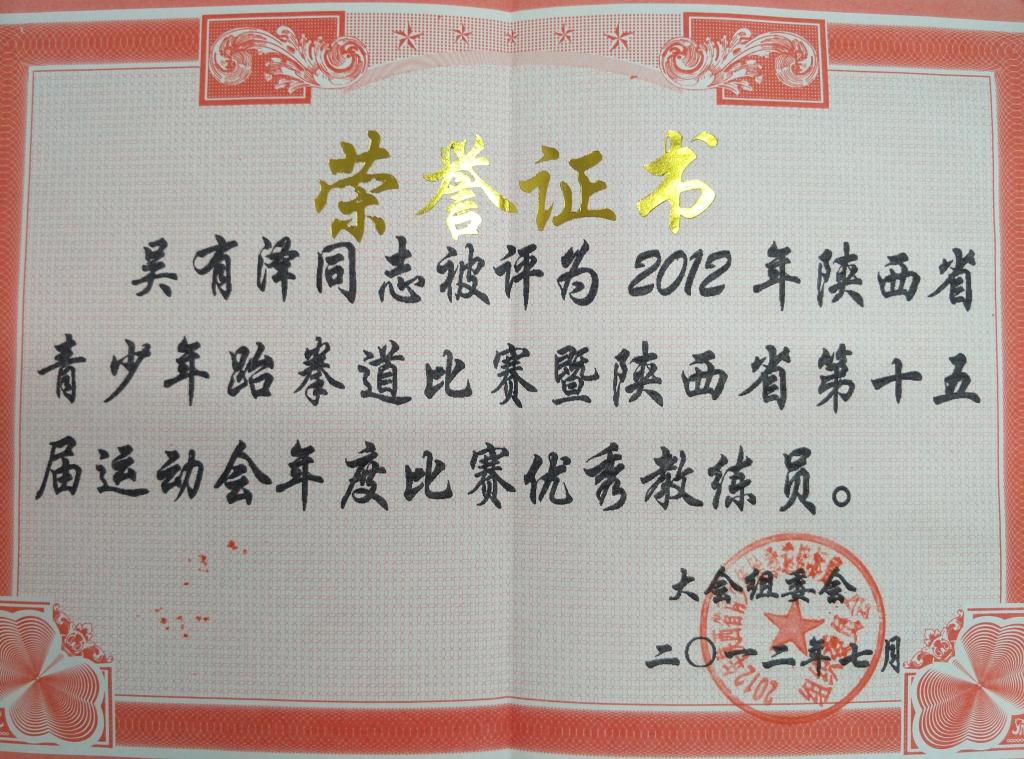 荣誉证书
吴有泽同志被评为2012年陕西省
青少年跆拳道比赛暨陕西省第十五
届运动会年度比赛优秀教练员。
大会组委会
二〇一二年七月